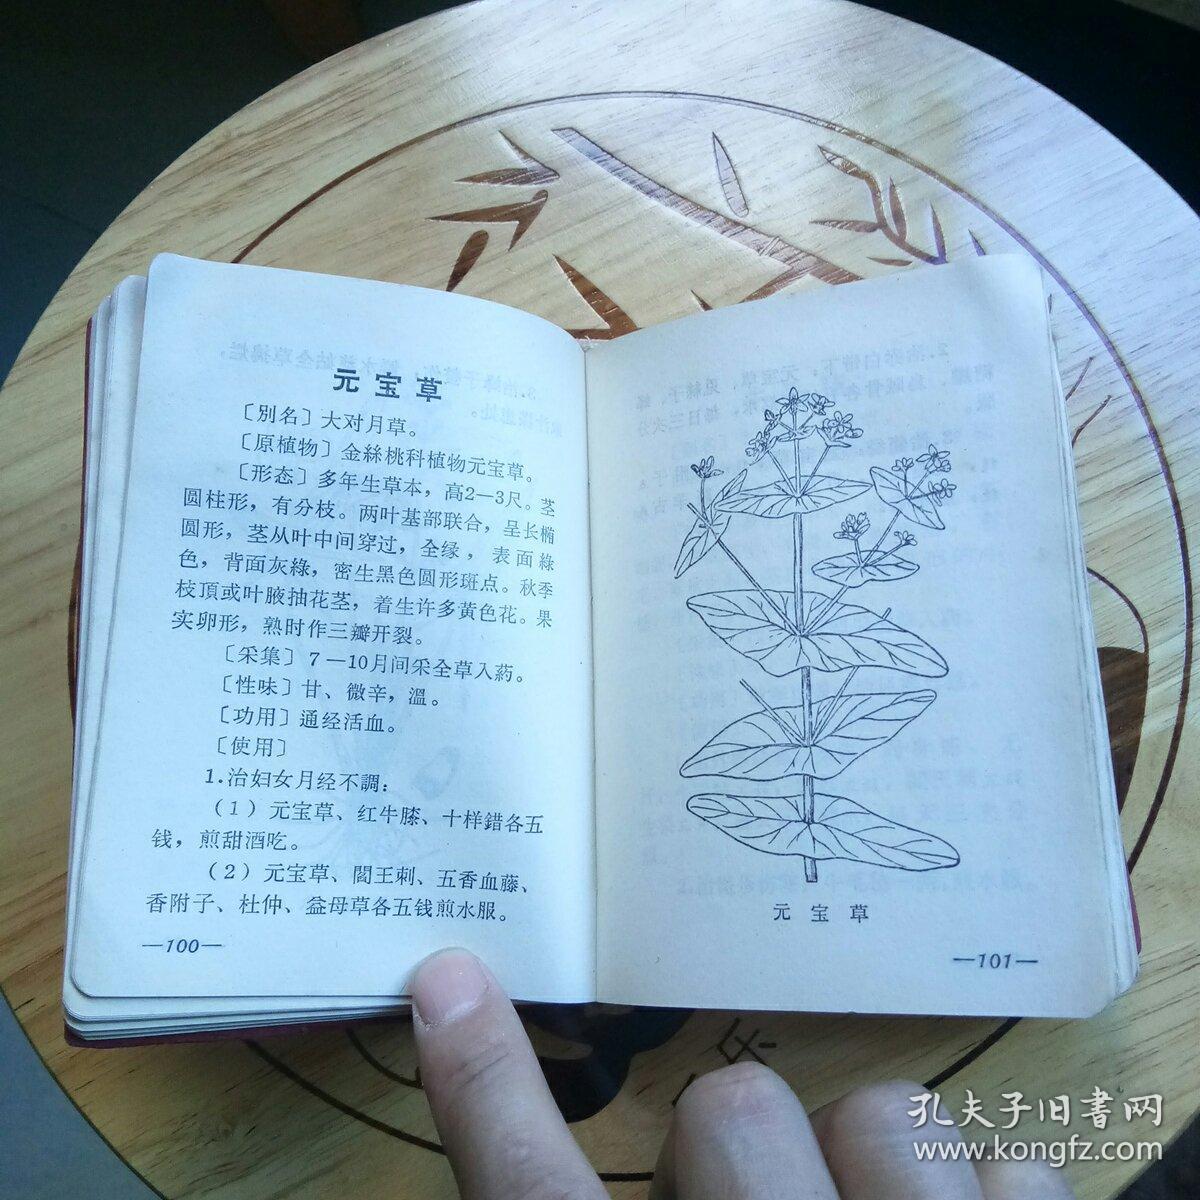 元宝草
〔別名〕大对月草。
〔原植物〕金絲桃科植物元宝草。
〔形态〕多年生草本，高2—3尺。茎
圆柱形，有分枝。两叶基部联合，呈长橢
圆形，茎从叶中间穿过，全缘，表面綠
色，背面灰綠，密生黑色圆形斑点。秋季
枝頂或叶腋抽花茎，着生许多黃色花。果
实卵形，熟时作三瓣开裂。
〔采集〕7—10月间采全草入药。
〔性味〕甘、微辛，溫。
〔功用〕通经活血。
〔使用〕
1.治妇女月经不調：
（1）元宝草、红牛膝、十样錯各五
钱，煎甜酒吃。
（2）元宝草、閻王刺、五香血藤、
香附子、杜仲、益母草各五钱煎水服。
—100—
元宝草
—101—
孔夫子旧书网
www.kongfz.com